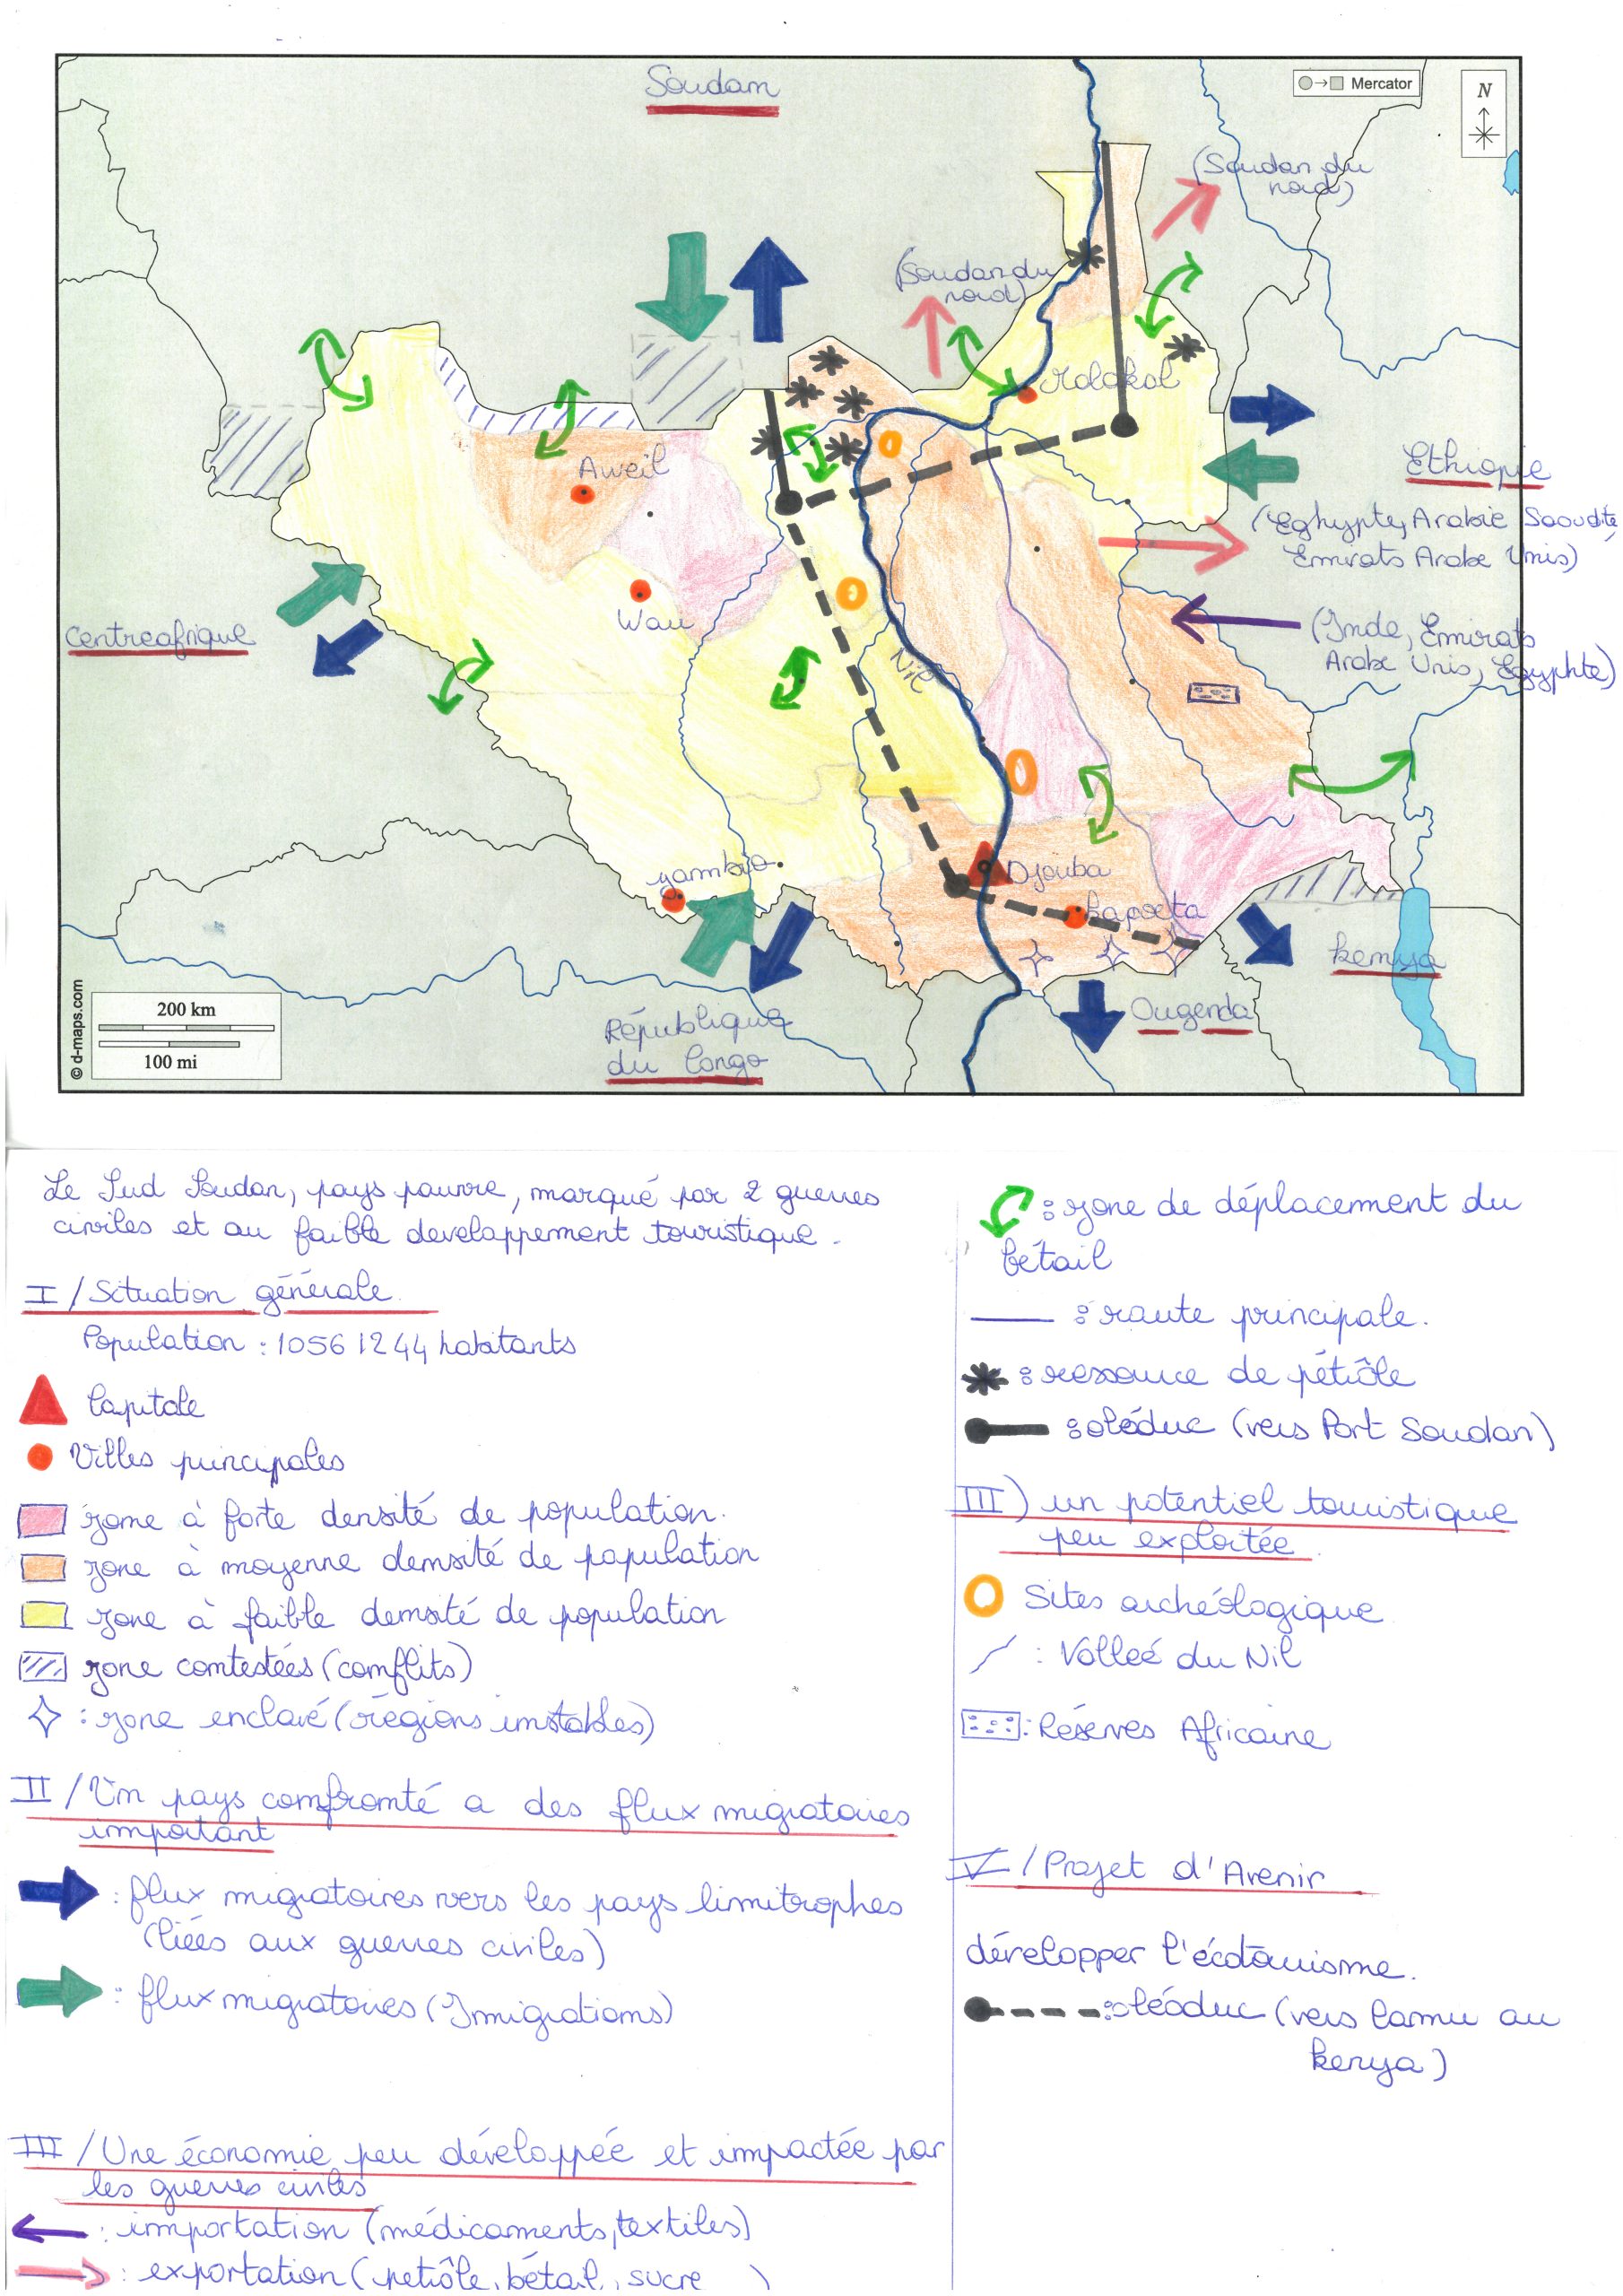 Soudan
Mercator
N
(Soudan du
nord)
(Soudan du
nord)
Malakal
Aweil
Ethiopie
(Eghypte, Arabie Saoudite,
Emirats Arabe Unis)
Wau
Centreafrique
(Inde, Emirats
Arabe Unis, Egyphte)
Nil
yambio
Djouba
Kapoeta
Kenya
Ougenda
République
du Congo
200 km
100 mi
© d-maps.com
Le Sud Soudan, pays pauvre, marqué par 2 guerres
civiles et au faible developpement touristique.
I / Situation générale
Population : 10561244 habitants
Capitale
Villes principales
zone à forte densité de population.
zone à moyenne densité de population
zone à faible densité de population
zone contestées (conflits)
: zone enclavé (régions instables)
II / Un pays confronté a des flux migratoires
important
: flux migratoires vers les pays limitrophes
(liées aux guerres civiles)
: flux migratoires (Immigrations)
III / Une économie peu développée et impactée par
les guerres civiles
: importation (médicaments, textiles)
: exportation (petrôle, bétail, sucre )
: zone de déplacement du
bétail
: route principale.
: ressource de pétrôle
: oléoduc (vers Port Soudan)
III ) un potentiel touristique
peu exploitée
Sites archéologique
: Valleé du Nil
: Réserves Africaine
V / Projet d'Avenir
développer l'écotourisme.
: oléoduc (vers Lamu au
kenya)